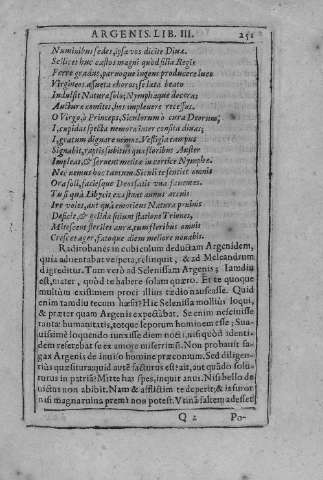 ARGENIS. LIB. III. 251
Numinibus sedes, ipsæ vos dicite Diuæ.
Scilicet huc castos magni quod filia Regis
Ferre gradus, paruoque ingens producere luco
Virgineos assueta choros; se lata beato
Indulsit Natura solo; Nymphæque decoræ
Auctura comites, hos impleuere recessus.
O Virgo, ô Princeps, Siculorum ô cura Deorum,
I, cupidas specta nemora inter consita diuas;
I, gratum dignare nemus. Vestigia campus
Signabit, rapiet subitus quæ floribus Auster
Impleat, & seruent meliæ in cortice Nymphæ.
Nec nemus hoc tantum. Siculi te sentiet omnis
Ora soli, faciesque Deus satis vna furentes.
Tu si quà Libycis exspatians annus arenis
Ire voles, aut quà emoriens Natura pruinis
Deficit, & gelida sitiunt statione Triones,
Mitescent steriles aura, tum floribus omnis
Crescet ager, fatoque diem meliore notabis.
Radirobanes in cubiculum deductam Argenidem,
quia aduentabat vespera, relinquit, & ad Meleandrum
digreditur. Tum verò ad Selenissam Argenis; Iamdiu
est, mater, quòd te habere solam quæro. Et te quoque
multùm existimem proci illius tædio nauseasse. Quid
enim tamdiu tecum hæsit? Hîc Selenissa molliùs loqui,
& præter quam Argenis expectabat. Se enim nescijsse
tantæ humanitatis, totque leporum hominem esse; Sua-
uissimè loquendo iunxisse diem nocti, nisi quòd identi-
dem referebat se ex amore miserrimũ. Non probauit sa-
gax Argenis de inuiso homine præconium. Sed diligen-
tiùs quæsitura, quid autè facturus esset, aut quàdo solu-
turus in patriã? Mitte has spes, inquit anus. Nisi bello de
uictus non abibit. Nam & afflictim te deperit; & is furor
nisi magna ruina premi non potest. Vtinã saltem adesset
Q 2 Po-